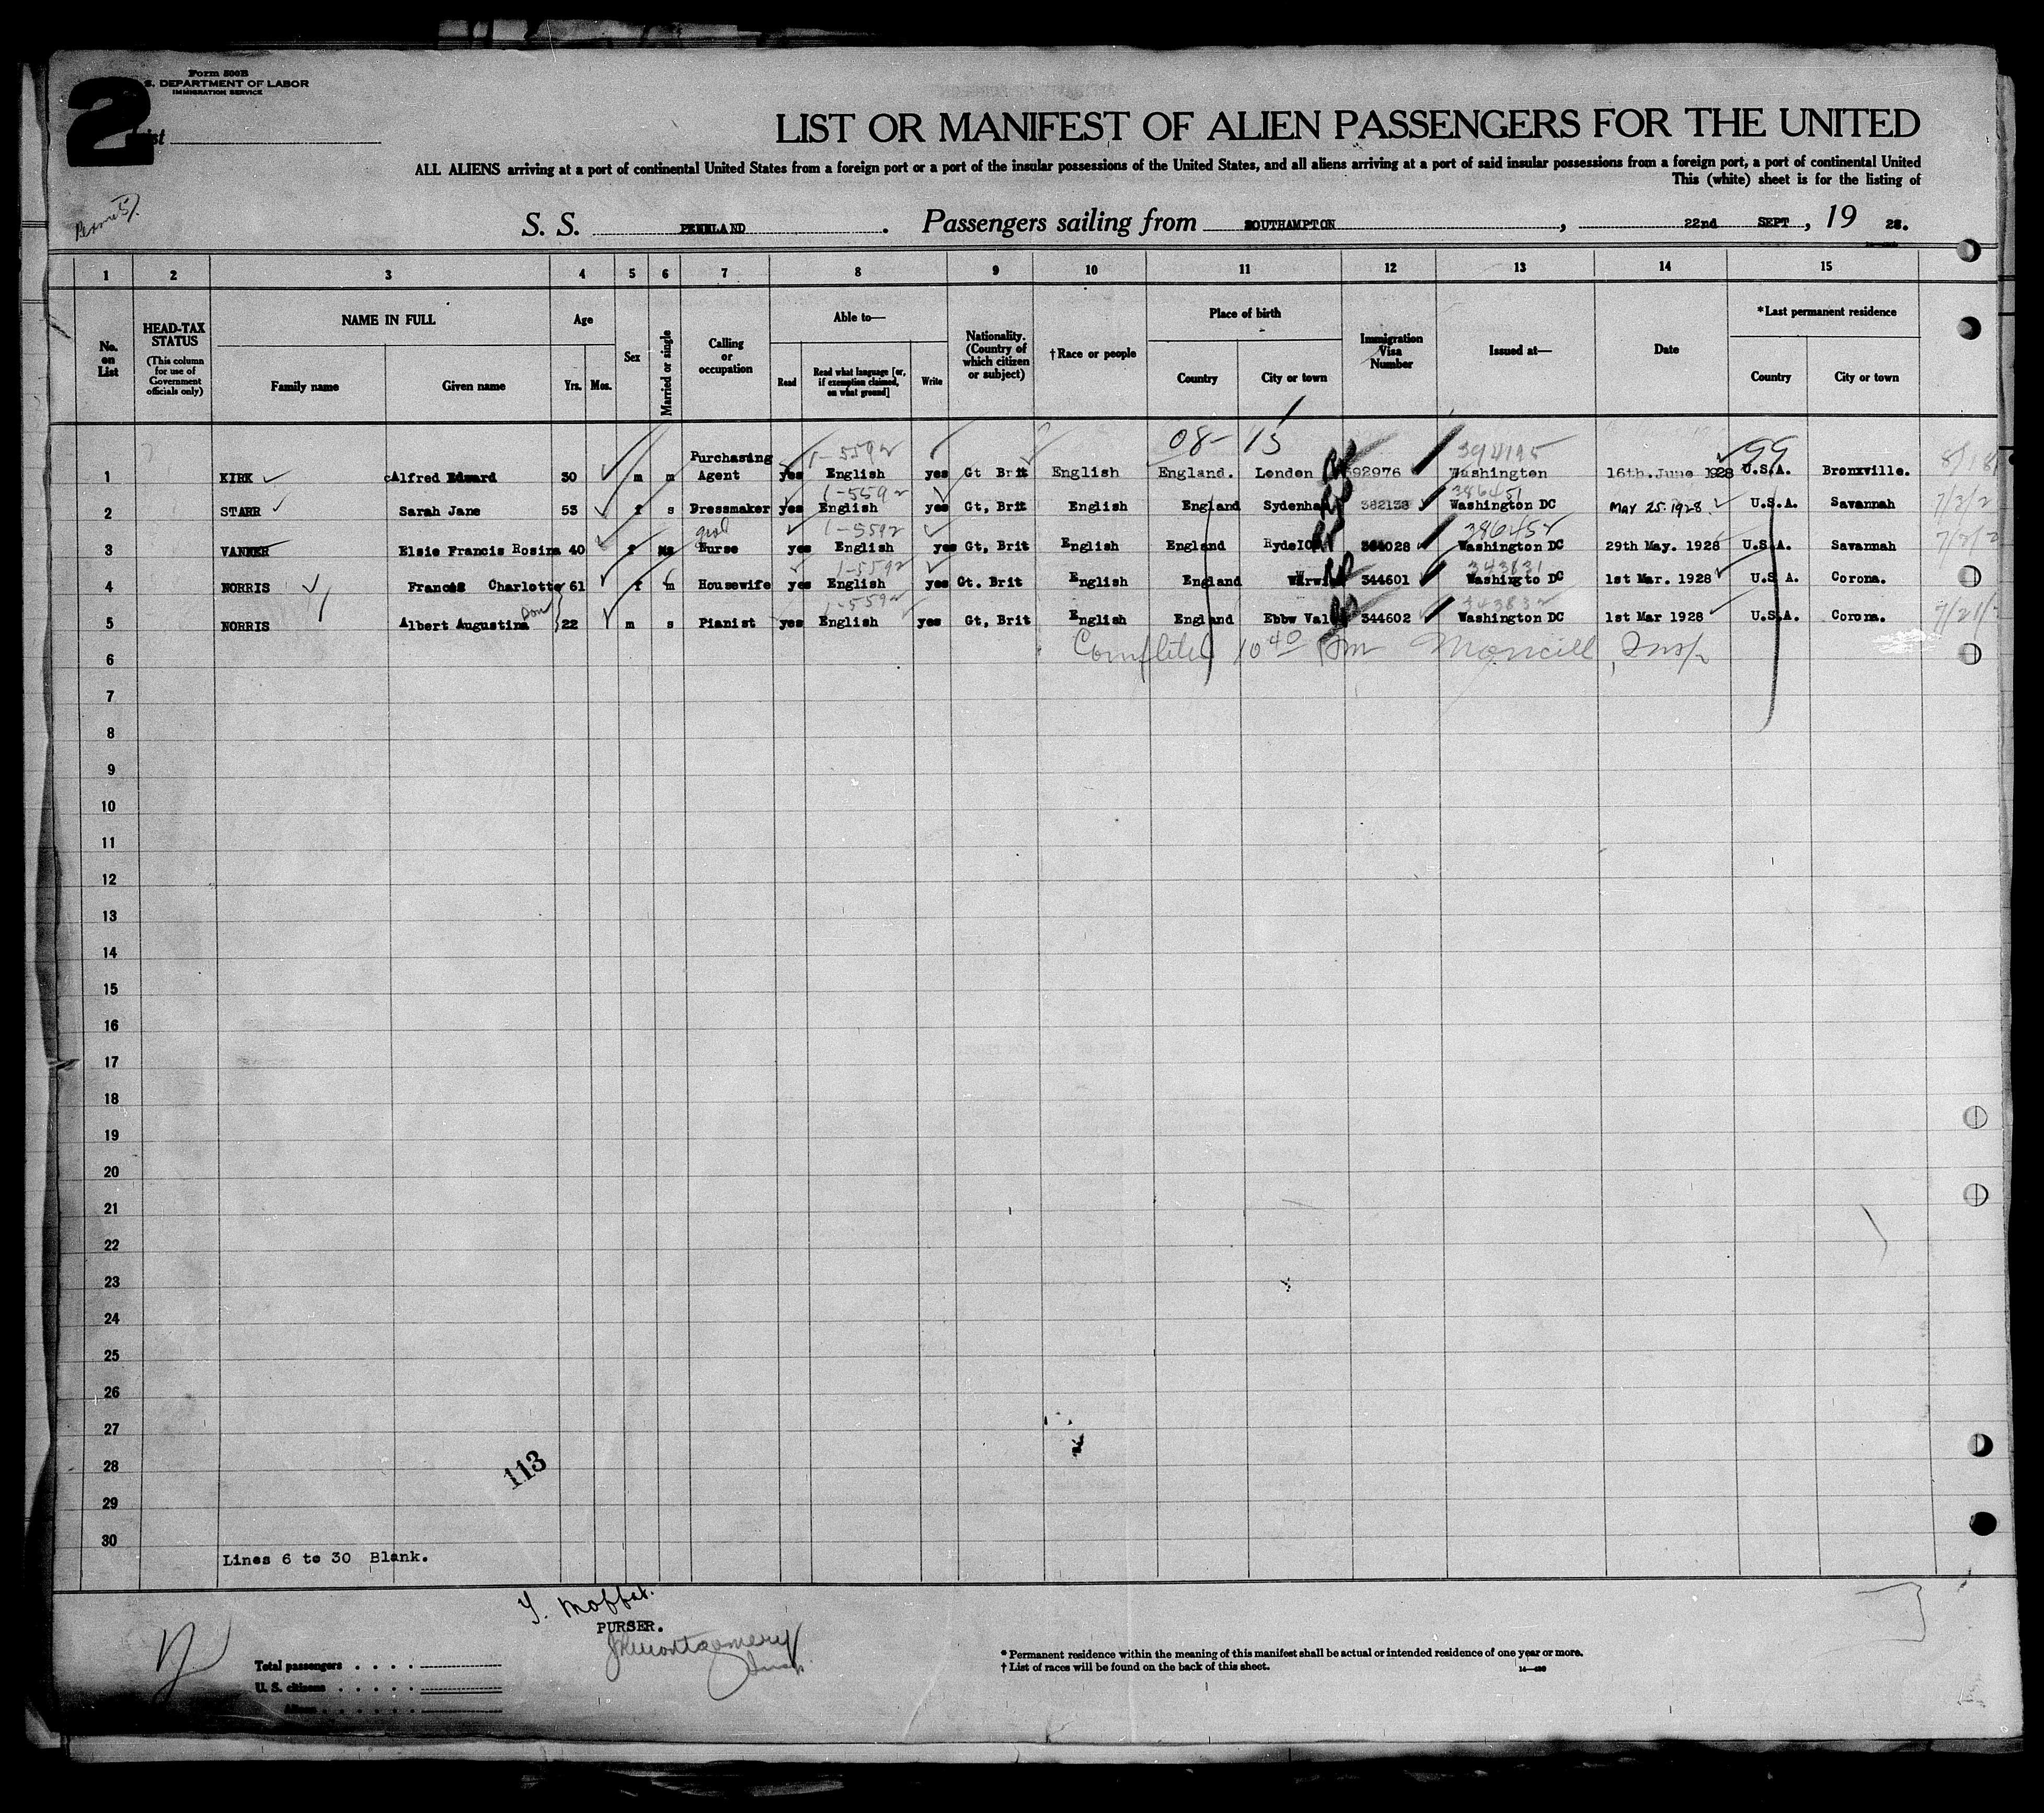 2
Form 500B
S. DEPARTMENT OF LABOR
IMMIGRATION SERVICE
List
LIST OR MANIFEST OF ALIEN PASSENGERS FOR THE UNITED
ALL ALIENS arriving at a port of continental United States from a foreign port or a port of the insular possessions of the United States, and all aliens arriving at a port of said insular possessions from a foreign port, a port of continental United
This (white) sheet is for the listing of
S. S. PENNLAND. Passengers sailing from SOUTHAMPTON, 22nd SEPT, 19 28.
1 2 3 4 5 6 7 8 9 10 11 12 13 14 15
No. on List
HEAD-TAX STATUS (This column for use of Government officials only)
NAME IN FULL Family name Given name
Age Yrs. Mos.
Sex
Married or single
Calling or occupation
Able to— Read Read what language [or, if exemption claimed, on what ground] Write
Nationality. (Country of which citizen or subject)
†Race or people
Place of birth Country City or town
Immigration Visa Number
Issued at—
Date
*Last permanent residence Country City or town
08- 15 99
1-5592 394195
1 KIRK Alfred Edward 30 m m Purchasing Agent yes English yes Gt Brit English England. London 392976 Washington 16th. June 1928 U.S.A. Bronxville.
1-5592 386451
2 STARR Sarah Jane 53 f s Dressmaker yes English yes Gt, Brit English England Sydenham 382138 Washington DC MAY 25.1928. U.S.A. Savannah
grad 1-5592 386452
3 VANNER Elsie Francis Rosina 40 f Nurse yes English yes Gt, Brit English England Ryde 384028 Washington DC 29th May. 1928 U.S.A. Savannah
1-5592 343831
4 NORRIS Francis Charlotte 61 f m Housewife yes English yes Gt. Brit English England Warwick 344601 Washingto DC 1st Mar. 1928 U.S A. Corona.
son 1-5592 343832
5 NORRIS Albert Augustina 22 m s Pianist yes English yes Gt, Brit English England Ebbw Vale 344602 Washington DC 1st Mar 1928 U.S.A. Corona.
6 Completed 10 40 Insp
7
8
9
10
11
12
13
14
15
16
17
18
19
20
21
22
23
24
25
26
27
28
29
30
113
Lines 6 to 30 Blank.
Moffat.
PURSER.
Montgomery
Insp.
Total passengers
U. S. citizens
Aliens
* Permanent residence within the meaning of this manifest shall be actual or intended residence of one year or more.
† List of races will be found on the back of this sheet.